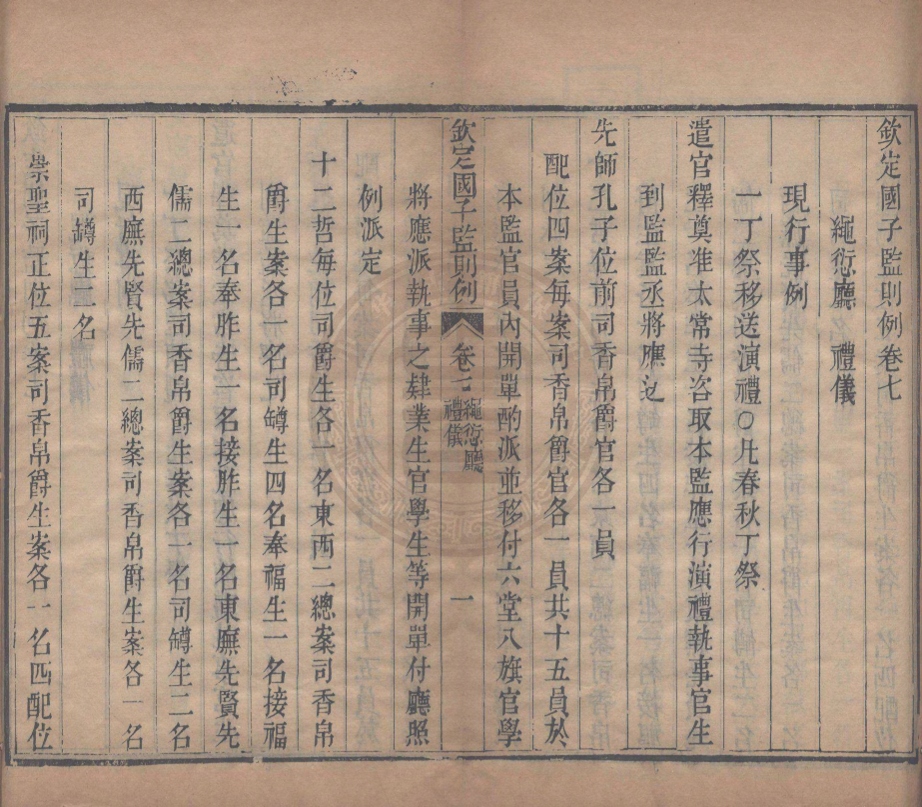 欽定國子監則例卷七
繩愆廳 禮儀
現行事例
一丁祭移送演禮○凡春秋丁祭
遣官釋奠准太常寺咨取本監應行演禮執事官生
到監監丞將應
先師孔子位前司香帛爵官各一員
配位四案每案司香帛爵官各一員共十五員於
本監官員內開單酌派並移付六堂八旗官學
欽定國子監則例 卷七 繩愆廳 禮儀 一
將應派執事之肄業生官學生等開單付廳照
例派定
十二哲每位司爵生各一名東西二總案司香帛
爵生案各一名司罇生四名奉福生一名接福
生一名奉胙生一名接胙生一名東廡先賢先
儒二總案司香帛爵生案各一名司罇生二名
西廡先賢先儒二總案司香帛爵生案各一名
司罇生二名
崇聖祠正位五案司香帛爵生案各一名四配位